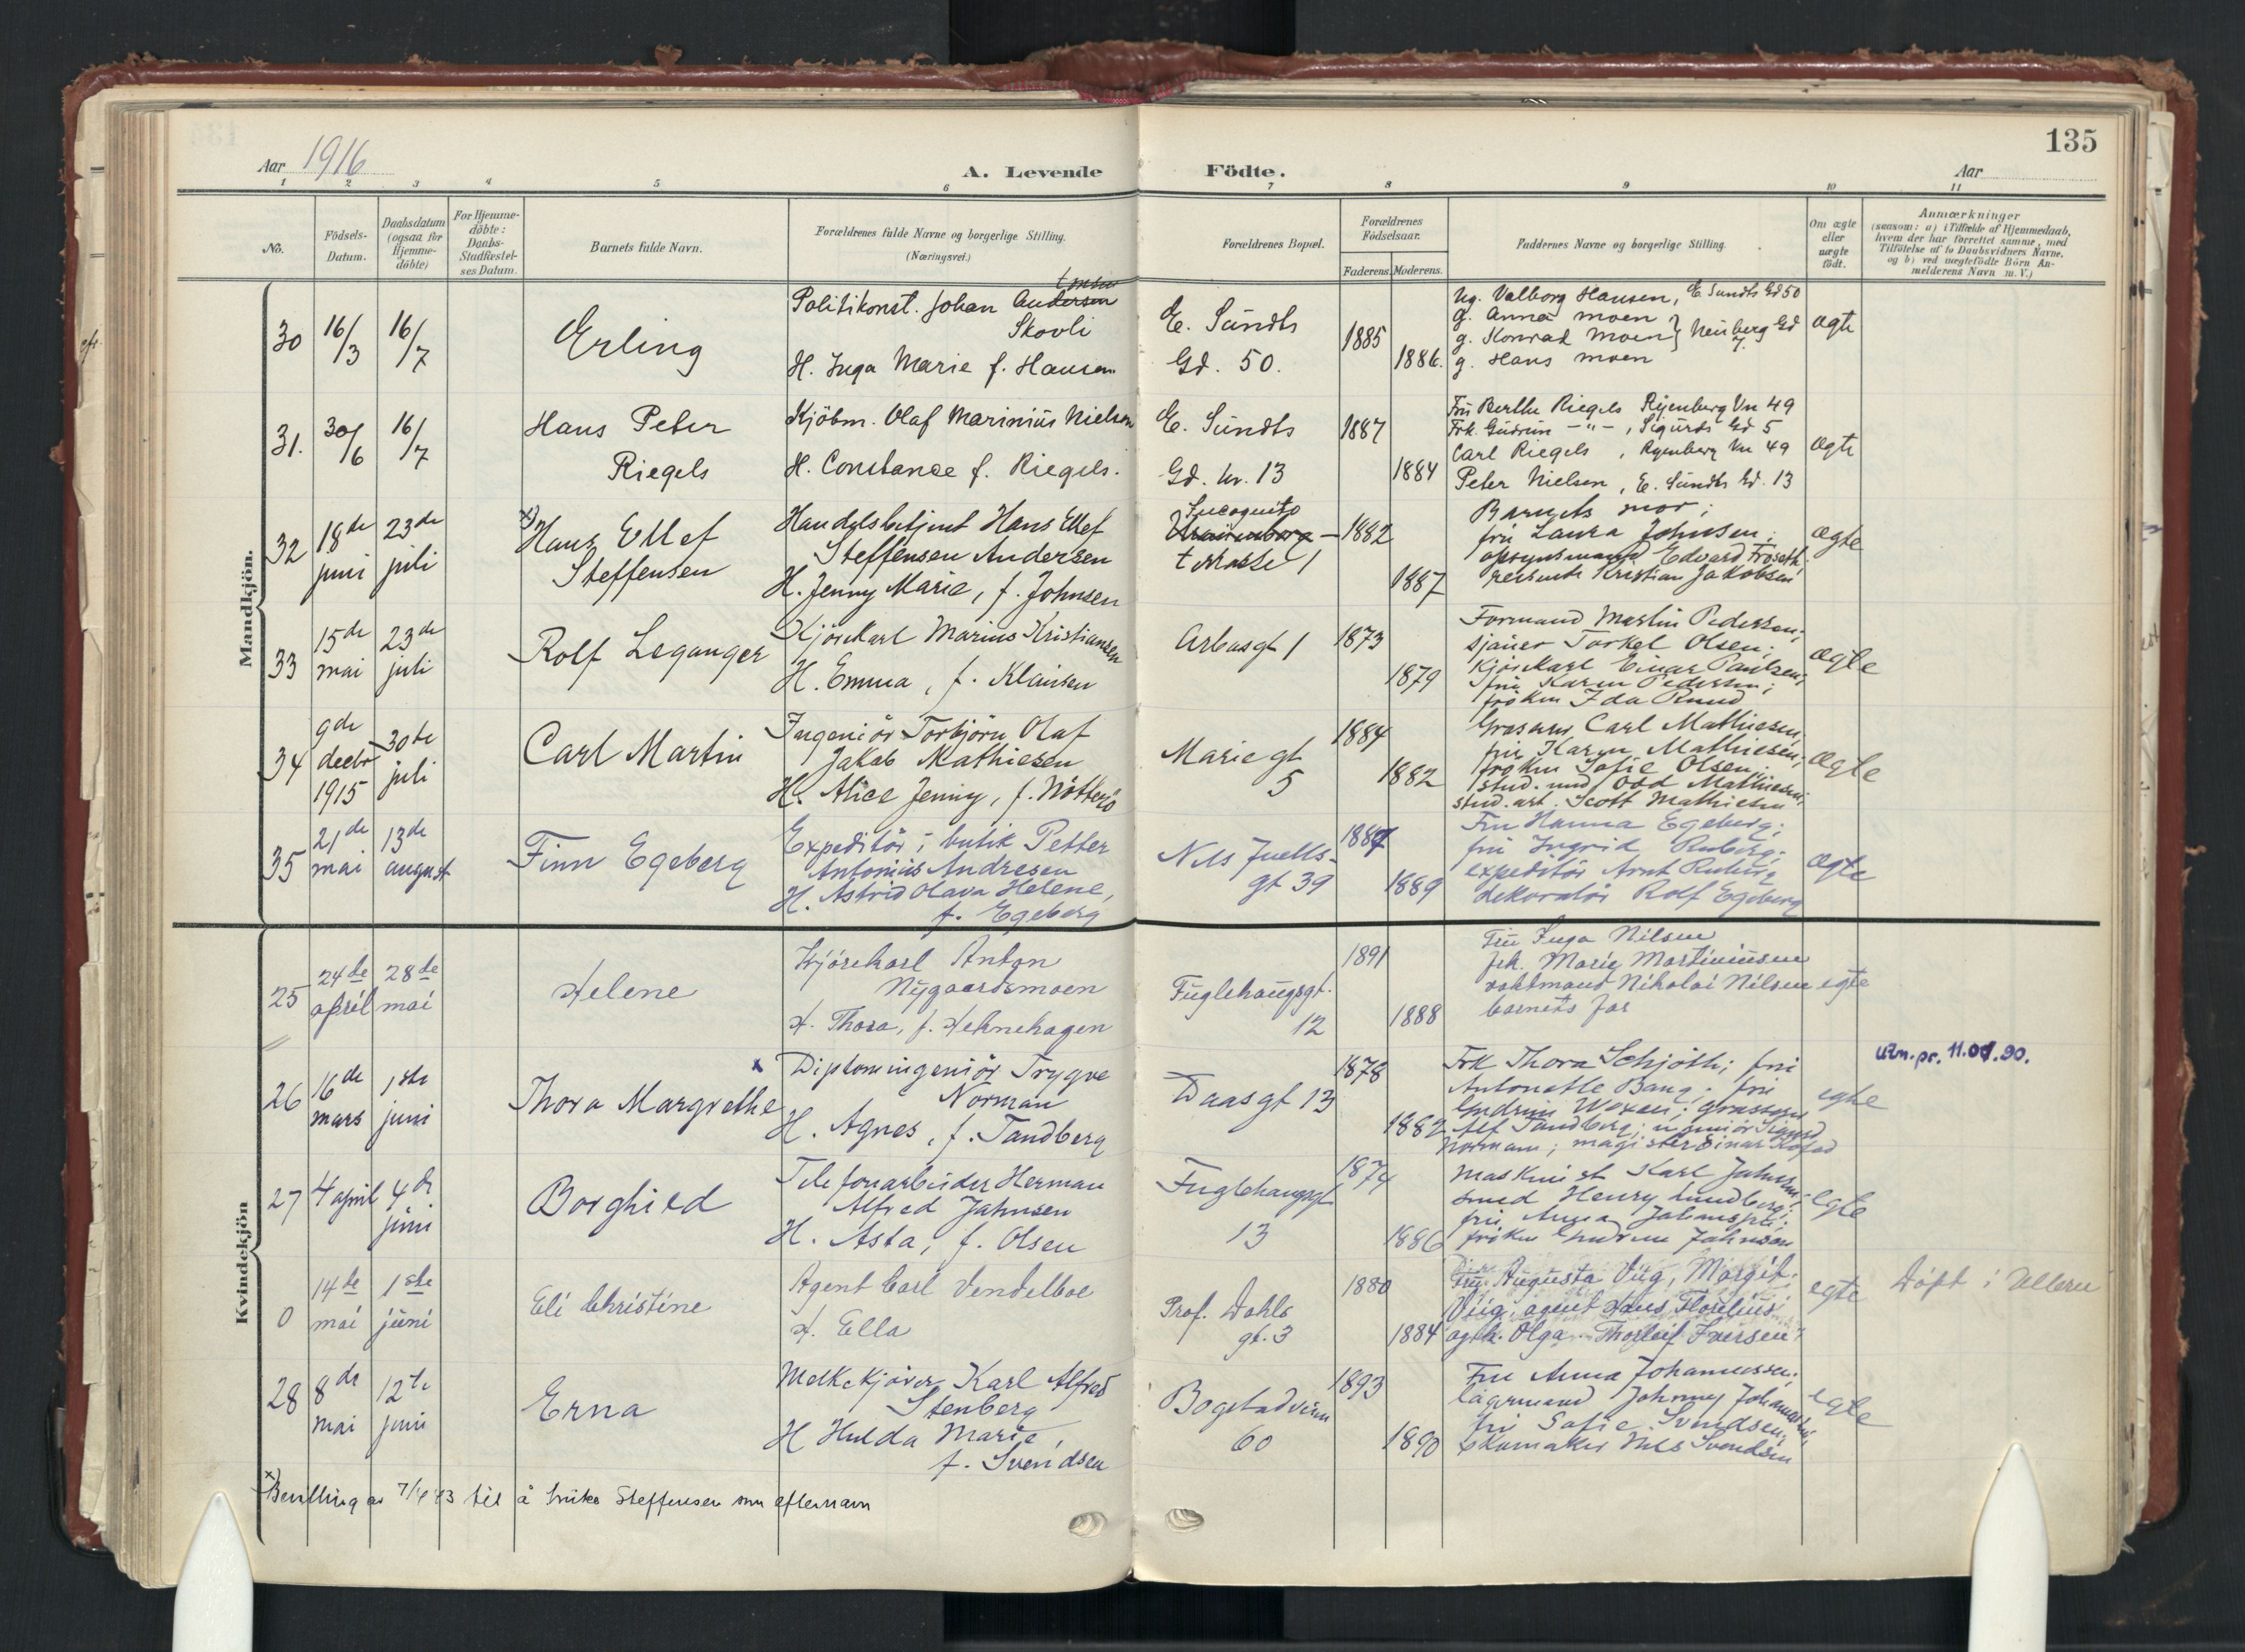 135
Aar 1916
A. Levende Födte.
Aar
1 2 3 4 5 6 7 8 9 10 11
No.
Födsels-
Datum.
Daabsdatum
(ogsaa for
Hjemme-
döbte)
For Hjemme-
döbte:
Daabs-
Stadfæstel-
ses Datum.
Barnets fulde Navn.
Forældrenes fulde Navne og borgerlige Stilling.
(Næringsvei.)
Forældrenes Bopæl.
Forældrenes
Födselsaar.
Faderens. Moderens.
Faddernes Navne og borgerlige Stilling.
Om ægte
eller
uægte
födt.
Anmærkninger
(saasom: a) i Tilfælde af Hjemmedaab,
hvem der har forrettet samme, med
Tilföielse af to Daabsvidners Navne,
og b) ved uægtefödte Börn An-
melderens Navn m. V.)
Mandkjön.
30
16/3
16/7
Erling
Politikonst. Johan Andersen
Skovli
H. Inga Marie f. Hansen
E. Sundts
Gd. 50.
1885
1886.
Ug. Valborg Hansen, E. Sundts Gd 50
g. Anna Moen
g. Konrad Moen } Neuberg Gd
7.
g. Hans Moen
ægte
31.
30/6
16/7
Hans Peter
Riegels
Kjöbm. Olaf Marinius Nielsen
H. Constance f. Riegels.
E. Sundts
Gd. nr. 13
1887
1884
Fru Berthe Riegels Ryenberg Vn 49
Frk. Gudrun -"- , Sigurds Gd 5
Carl Riegels , Ryenberg Vn 49
Peter Nielsen, E. Sundts Gd. 13
ægte
32
18de
juni
23de
juli
x) Hans Ellef
Steffensen
Handelsbetjent Hans Ellef
Steffensen Andersen
H. Jenny Marie, f. Johnsen
Incognito
terrasse 1
1882
1887
Barnets mor;
fru Laura Johnsen;
opsynsmand Edvard Froseth;
reisende Kristian Jakobsen
ægte
33
15de
mai
23de
juli
Rolf Leganger
Kjörekarl Marius Kristiansen
H. Emma, f. Klausen
Arbosgt 1
1873
1879
Formand Martin Pedersen;
sjauer Torkel Olsen;
kjörekarl Einar Paulsen;
fru Karen Pedersen;
fröken Ida Ruud
ægte
34
9de
decbr
1915
30te
juli
Carl Martin
Ingeniör Torbjörn Olaf
Jakob Mathiesen
H. Alice Jenny, f. Nötterö
Marie gt
5
1884
1882
Grosserer Carl Mathiesen;
fru Karen Mathiesen;
fröken Sofie Olsen;
stud. med Odd Mathiesen;
stud. art. Scott Mathiesen
ægte
35
21de
mai
13de
august
Finn Egeberg
Expeditör i butik Petter
Antonius Andresen
H. Astrid Olava Helene,
f. Egeberg
Nils Juells-
gt 39
1887
1889
Fru Hanna Egeberg;
fru Ingrid Ruberg;
expeditör Arnt Ruberg
dekoratör Rolf Egeberg
ægte
Kvindekjön
25
24de
april
28de
mai
Helene
Kjörekarl Anton
Nygaardsmoen
H. Thora, f. Helmehagen
Fuglehaugsgt.
12
1891
1888
Fru Inga Nilsen
frk. Marie Martiniussen
vaktmand Nikolai Nilsen
barnets far
egte
26
16de
mars
1ste
juni
Thora Margrethe
x Diplomingeniör Trygve
Norman
H. Agnes, f. Tandberg
Daasgt 13
1878
1882
Frk Thora Schjöth; fru
Antonette Bang; fru
Gudrun Woxen; grosserer
Alf Tandberg; ingeniör Sigurd
Norman; magister Einar Kofad
egte
uzn.pr. 11.01.90.
27
4 april
4de
juni
Borghild
Telefonarbeider Herman
Alfred Jahnsen
H. Asta, f. Olsen
Fuglehaugsgt
13
1874
1886
Maskinist Karl Jahnsen;
smed Henry Lundberg;
fru Anna Johansen;
fröken Gudrun Jahnsen
egte
0
14de
mai
1ste
juni
Eli Christine
Agent Carl Vendelboe
H. Ella
Prof. Dahls
gt. 3
1880
1884
Fru Augusta Viig, Margit
Viig, agent Hans Florelius
agtk. Olga, Thorleif Iversen
egte
Döpt i Ullern
28
8de
mai
12te
juni
Erna
Melkekjörer Karl Alfred
Stenberg
H Hulda Marie,
f. Svendsen
Bogstadveien
60
1893
1890
Fru Anna Johannessen;
lagermand Johnny Johannessen;
fru Sofie Svendsen;
skomaker Nils Svendsen
egte
x) Bevilling av 7/4 43 til å bruke Steffensen som etternavn